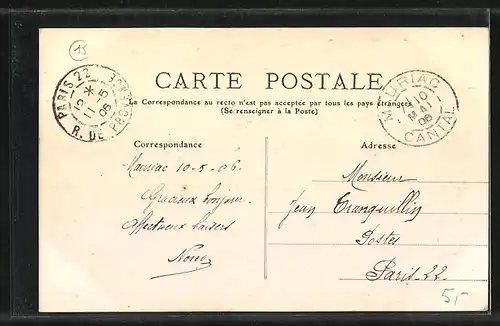 15
PARIS 22
12 *
11 - 5
06
R. DE PROVENCE
CARTE POSTALE
MAURIAC
10
MAI
06
CANTAL
La Correspondance au recto n'est pas acceptée par tous les pays étrangers
(Se renseigner à la Poste)
Correspondance
Mauriac 10-5-06.
Gracieux bonjour.
Affectueux baisers
Adresse
Monsieur
Jean Tranquillin
Postes
Paris-22-
5,-